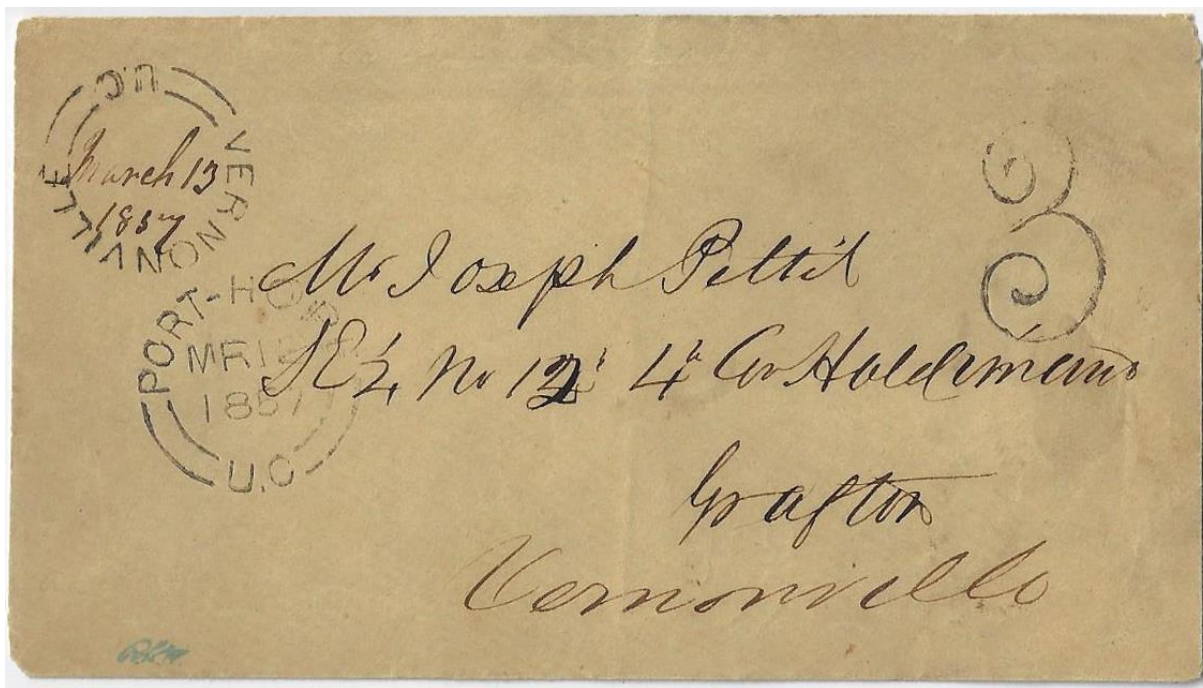 VERNONVILLE U.C
March 13
1857
PORT-HOPE
MR 1
1857
U.C
3
Mr Joseph Pettit
SE ¼ No 12 4th Con Haldimand
Grafton
Vernonville